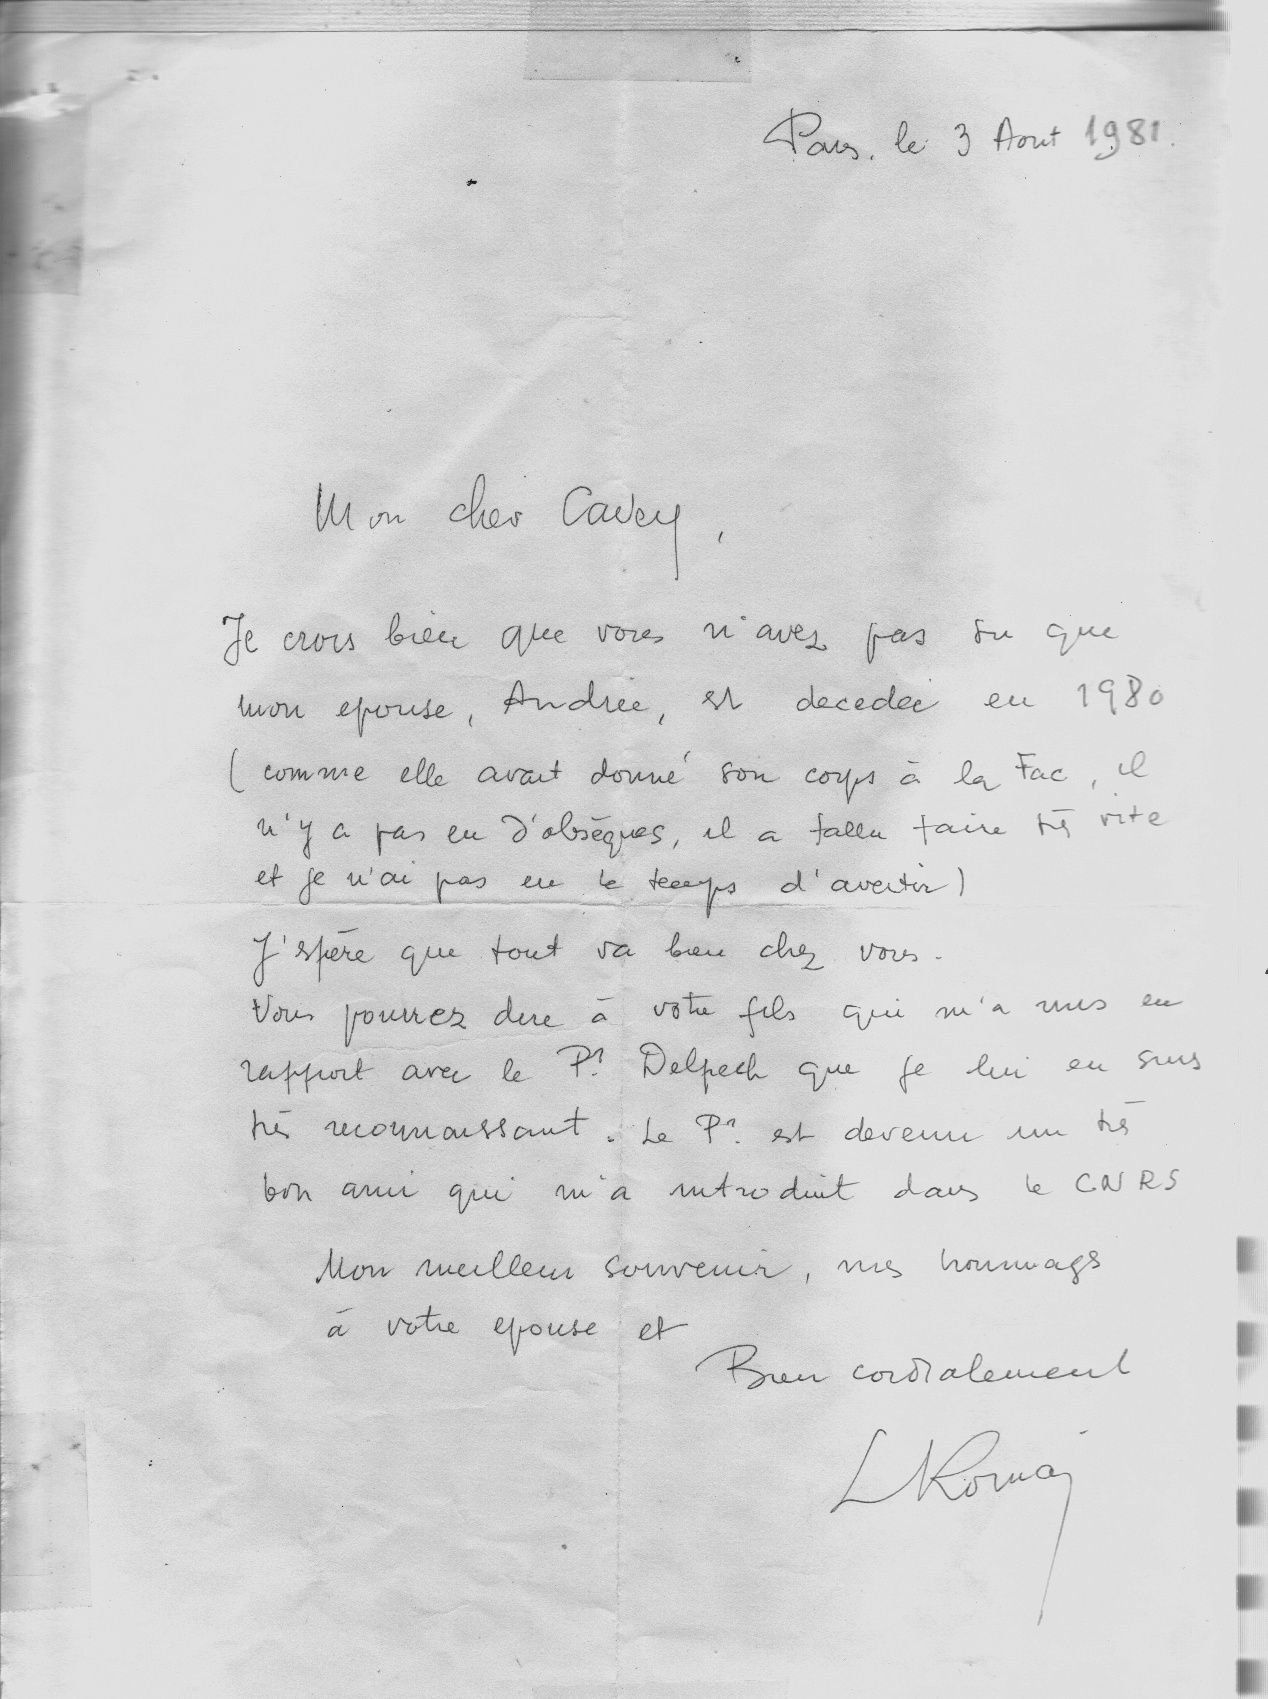 Paris, le 3 Aout 1981.
Mon cher Cavey,
Je crois bien que vous n'avez pas su que
mon epouse, Andrée, est decedée en 1980
(comme elle avait donné son corps à la Fac, il
n'y a pas eu d'obsèques, il a fallu faire très vite
et je n'ai pas eu le temps d'avertir)
J'espère que tout va bien chez vous.
Vous pourrez dire à votre fils qui m'a mis en
rapport avec le Pr. Delpech que je lui en suis
très reconnaissant. Le Pr. est devenu un très
bon ami qui m'a introduit dans le CNRS
Mon meilleur souvenir, mes hommages
à votre epouse et
Bien cordialement
L Romai